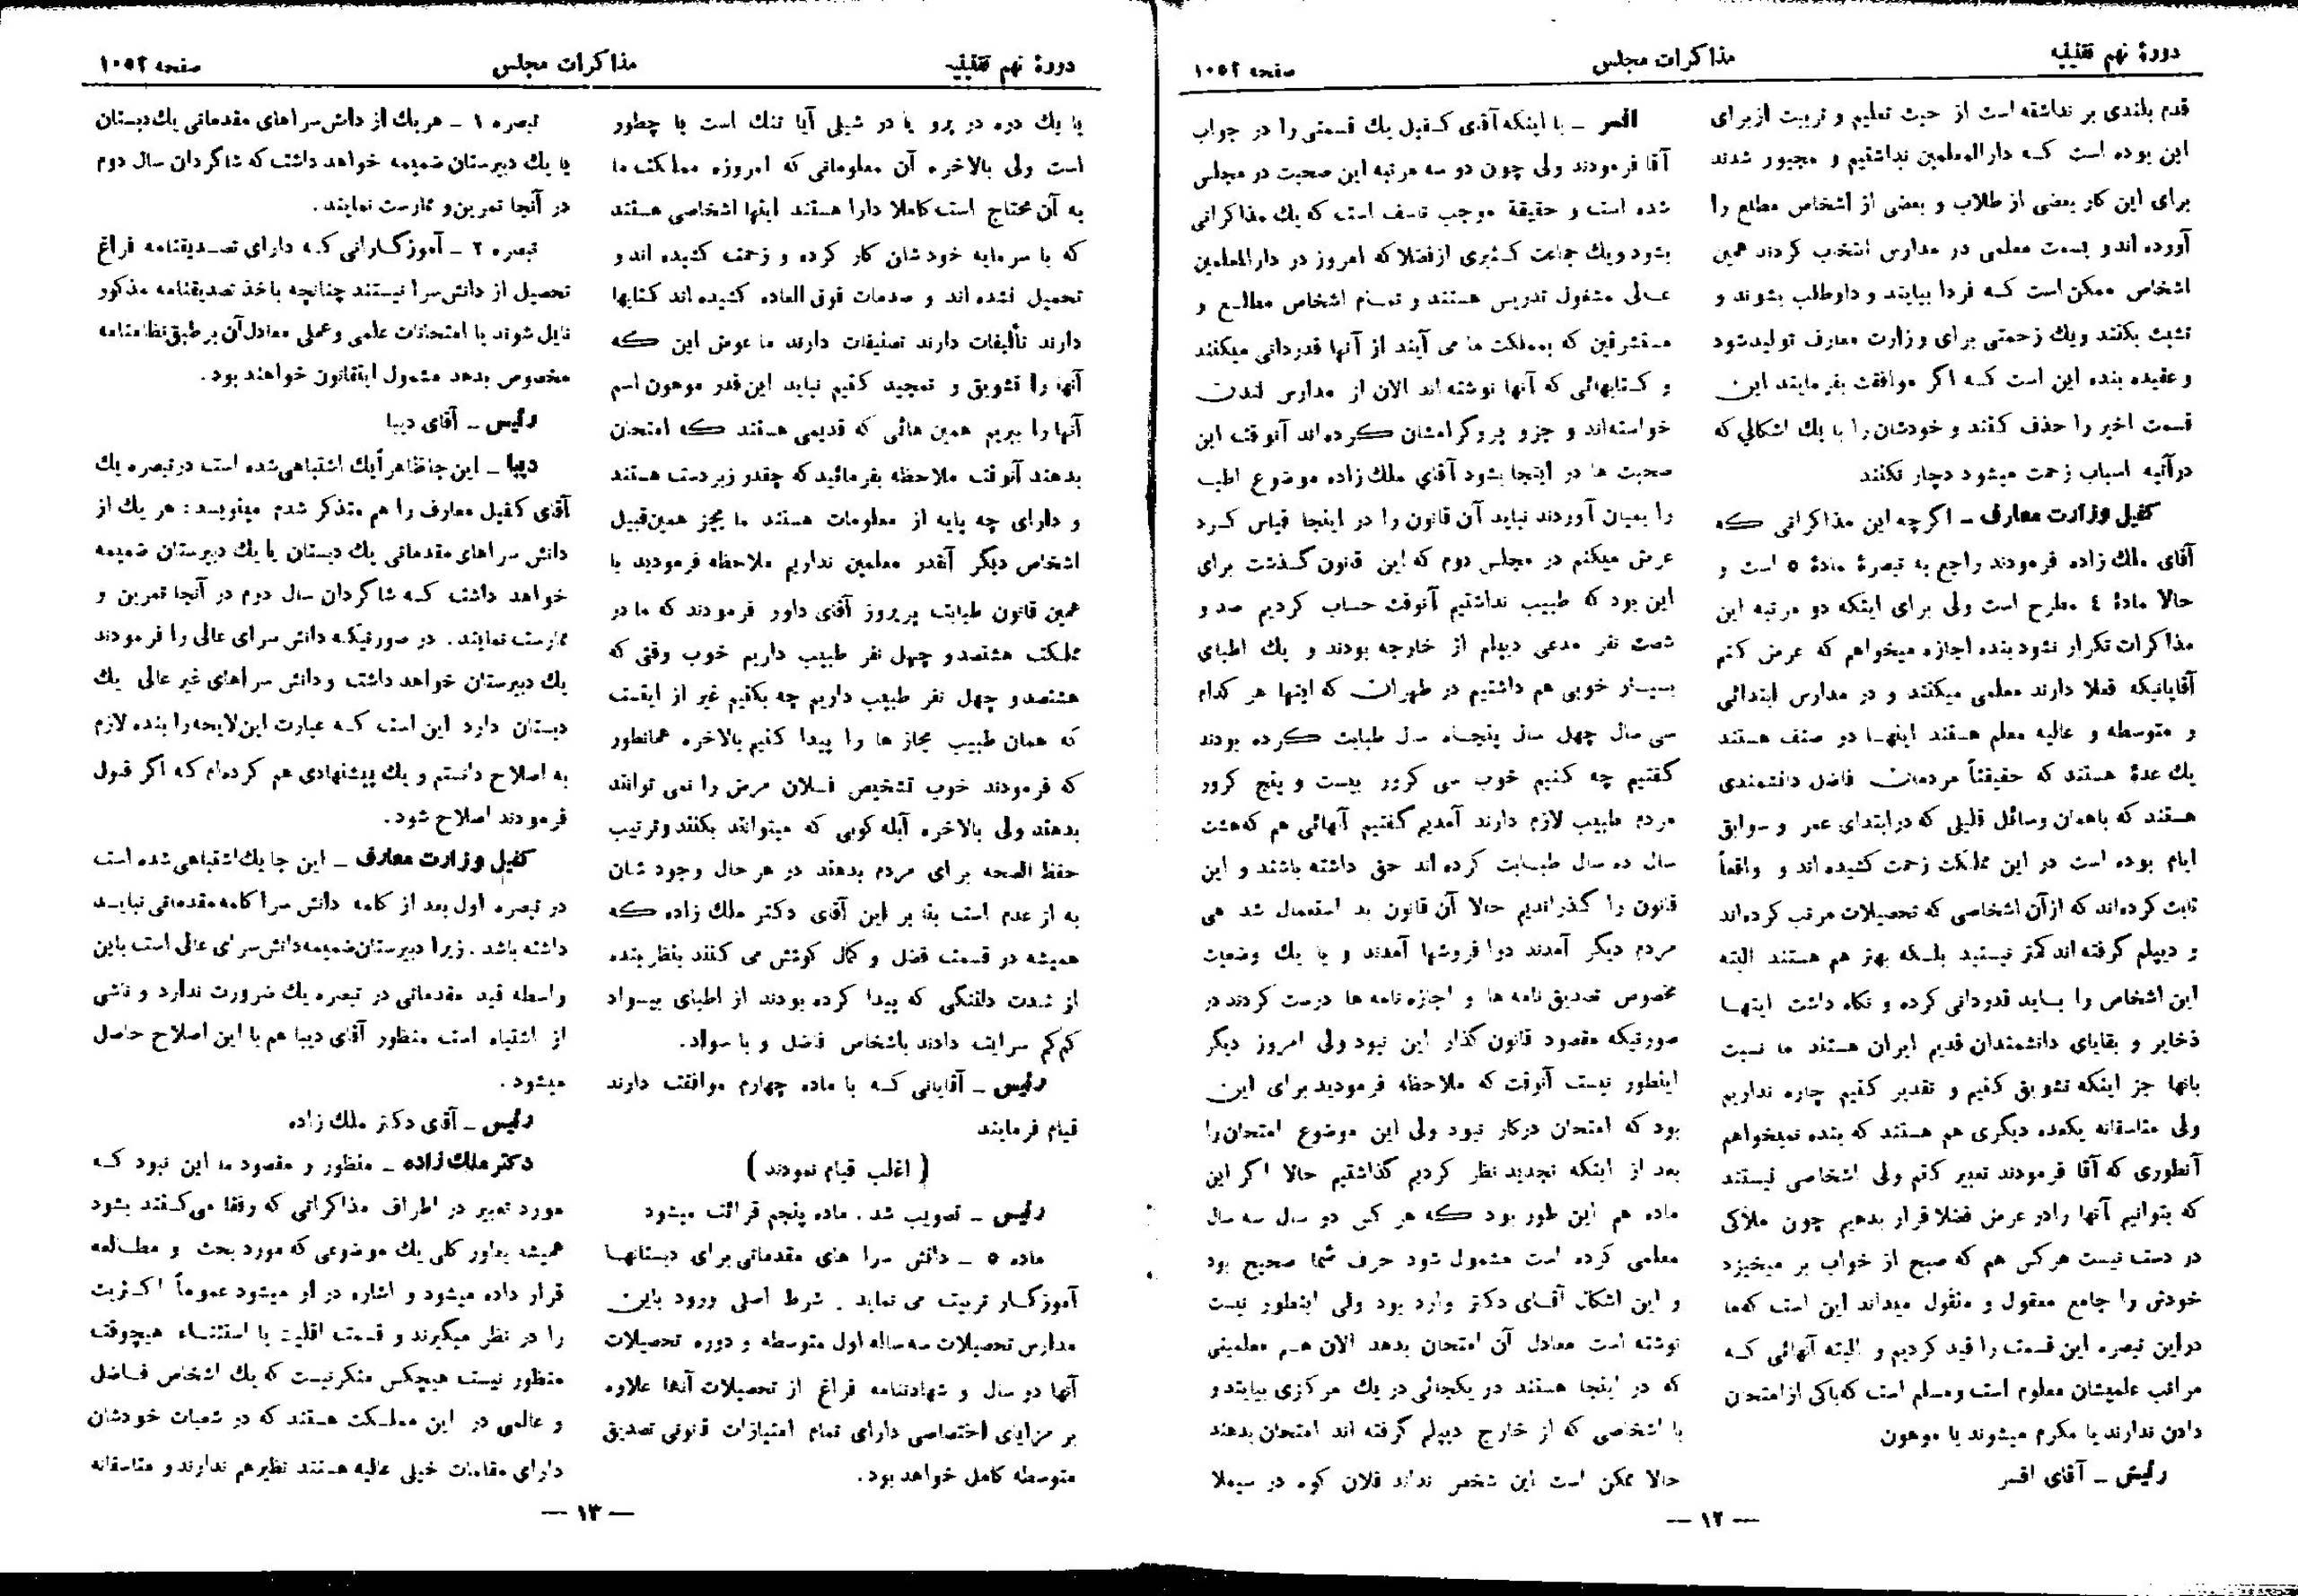 دورهٔ نهم تقنینیه
مذاکرات مجلس
صفحه ۱۰۵۲
قدم بلندی بر نداشته است از حیث تعلیم و تربیت ازبرای
این بوده است کـه دارالمعلمین نداشتیم و مجبور شدند
برای این کار بعضی از طلاب و بعضی از اشخاص مطلع را
آورده اند و بسمت معلمی در مدارس انتخاب کردند همین
اشخاص ممکن است کـه فردا بیایند و داوطلب بشوند و
تشبث بکنند ویك زحمتی برای وزارت معارف تولید شود
و عقیده بنده این است کـه اگر موافقت بفرمایند این
قسمت اخیر را حذف کنند و خودشان را با یك اشکالی که
درآتیه اسباب زحمت میشود دچار نکنند
کفیل وزارت معارف ـ اگرچه این مذاکراتی که
آقای ملك زاده فرمودند راجع به تبصرهٔ مادهٔ ۵ است و
حالا مادهٔ ٤ مطرح است ولی برای اینکه دو مرتبه این
مذاکرات تکرار نشود بنده اجازه میخواهم که عرض کنم
آقایانیکه فعلا دارند معلمی میکنند و در مدارس ابتدائی
و متوسطه و عالیه معلم هستند اینهـا دو صنف هستند
یك عدهٔ هستند که حقیقتاً مردمان فاضل دانشمندی
هستند که باهمان وسائل قلیلی که درابتدای عمر و سوابق
ایام بوده است در این مملکت زحمت کشیده اند و واقعاً
ثابت کرده‌اند که ازآن اشخاصی که تحصیلات مرتب کرده‌اند
و دیپلم گرفته اند کمتر نیستند بلـکه بهتر هم هستند البته
این اشخاص را بـاید قدردانی کرده و نگاه داشت اینهـا
ذخایر و بقایای دانشمندان قدیم ایران هستند ما نسبت
بانها جز اینکه تشویق کنیم و تقدیر کنیم چاره نداریم
ولی متاسفانه یکعده دیگری هم هستند که بنده نمیخواهم
آنطوری که آقا فرمودند تعبیر کنم ولی اشخاصی نیستند
که بتوانیم آنها رادر عرض فضلا قرار بدهیم چون ملاکی
در دست نیست هرکس هم که صبح از خواب بر میخیزد
خودش را جامع معقول و منقول میداند این است که‌ما
دراین تبصره این قسمت را قید کردیم و البته آنهائی کـه
مراتب علمیشان معلوم است و مسلم است که‌باکی ازامتحان
دادن ندارند یا مکرم میشوند یا موهون
رئیس ـ آقای افسر
افسر ـ با اینکه آقای کـفیل یك قسمتی را در جواب
آقا فرمودند ولی چون دو سه مرتبه این صحبت در مجلس
شده است و حقیقة موجب تاسف است که یك مذاکراتی
بشود ویك جماعت کـثیری ازفضلا که امروز در دارالمعلمین
عـالی مشغول تدریس هستند و تمـام اشخاص مطالـع و
مستشرقین که بمملکت ما می آیند از آنها قدردانی میکنند
و کـتابهائی که آنها نوشته اند الان از مدارس لندن
خواسته‌اند و جزو پروگرامشان کرده‌اند آنوقت این
صحبت ها در اینجا بشود آقای ملك زاده موضوع اطبـا
را بمیان آوردند نباید آن قانون را در اینجا قیاس کـرد
عرض میکنم در مجلس دوم که این قانون گـذشت برای
این بود که طبیب نداشتیم آنوقت حساب کردیم صد و
شصت نفر مدعی دیپلم از خارجه بودند و یك اطبای
بسیـار خوبی هم داشتیم در طهران که اینها هر کدام
سی سال چهل سال پنجـاه سال طبابت کرده بودند
گفتیم چه کنیم خوب سی کرور بیست و پنج کرور
مردم طبیب لازم دارند آمدیم گفتیم آنهائی هم که‌هشت
سال ده سال طبـابت کرده اند حق داشته باشند و این
قانون را گذراندیم حالا آن قانون بد استعمال شد هی
مردم دیگر آمدند دوا فروشها آمدند و با یك وضعیت
مخصوص تصدیق نامه ها و اجازه نامه ها درست کردند در
صورتیکه مقصود قانون گذار این نبود ولی امروز دیگر
اینطور نیست آنوقت که ملاحظه فرمودید برای این
بود که امتحان درکار نبود ولی این موضوع امتحان را
بعد از اینکه تجدید نظر کردیم گذاشتیم حالا اگر این
ماده هم این طور بود که هر کس دو سال سه سال
معلمی کرده است مشمول شود حرف شما صحیح بود
و این اشکال آقـای دکتر وارد بود ولی اینطور نیست
نوشته است معادل آن امتحان بدهد الان هـم معلمینی
که در اینجا هستند در یکجائی در یك مرکزی بیایند و
با اشخاصی که از خارج دیپلم گرفته اند امتحان بدهند
حالا ممکن است این شخص نداند فلان کوه در سیملا
— ۱۲ —
دورهٔ نهم تقنینیه
مذاکرات مجلس
صفحه ۱۰۵۲
یا یك دره در پرو یا در شیلی آیا تنك است یا چطور
است ولی بالاخره آن معلوماتی که امروزه مملکت ما
به آن محتاج است کاملا دارا هستند اینها اشخاصی هستند
که با سرمایه خودشان کار کرده و زحمت کشیده اند و
تحمیل نشده اند و صدمات فوق العاده کشیده اند کتابها
دارند تألیفات دارند تصنیفات دارند ما عوض این که
آنها را تشویق و تمجید کنیم نباید این‌قدر موهون اسم
آنها را ببریم همین هائی که قدیمی هستند که امتحان
بدهند آنوقت ملاحظه بفرمائید که چقدر زبردست هستند
و دارای چه پایه از معلومات هستند ما بجز همین‌قبیل
اشخاص دیگر آنقدر معلمین نداریم ملاحظه فرمودید با
همین قانون طبابت پریروز آقای داور فرمودند که ما در
مملکت هشتصدو چهل نفر طبیب داریم خوب وقتی که
هشتصدو چهل نفر طبیب داریم چه بکنیم غیر از اینست
که همان طبیب مجاز ها را پیدا کنیم بالاخره همانطور
که فرمودند خوب تشخیص فـلان مرض را نمی توانند
بدهند ولی بالاخره آبله کوبی که میتوانند بکنند وترتیب
حفظ الصحه برای مردم بدهند در هر حال وجود شان
به از عدم است بنا بر این آقای دکتر ملك زاده که
همیشه در قسمت فضل و کمال کوشش می کنند بنظر بنده
از شدت دلتنگی که پیدا کرده بودند از اطبای بیسواد
کم‌کم سرایت دادند باشخاص فاضل و با سواد.
رئیس ـ آقایانی کـه با ماده چهارم موافقت دارند
قیام فرمایند
( اغلب قیام نمودند )
رئیس ـ تصویب شد . ماده پنجم قرائت میشود
ماده ۵ ـ دانش سرا های مقدماتی برای دبستانهـا
آموزگـار تربیت می نماید . شرط اصلی ورود باین
مدارس تحصیلات سه ساله اول متوسطه و دوره تحصیلات
آنها دو سال و شهادتنامه فراغ از تحصیلات آنها علاوه
بر مزایای اختصاصی دارای تمام امتیازات قانونی تصدیق
متوسطه کامل خواهد بود.
تبصره ۱ ـ هریك از دانش‌سراهای مقدماتی یك‌دبستان
یا یك دبیرستان ضمیمه خواهد داشت که شاگردان سال دوم
در آنجا تمرین و ممارست نمایند.
تبصره ۲ ـ آموزگـارانی کـه دارای تصـدیقنامه فراغ
تحصیل از دانش‌سرا نیستند چنانچه باخذ تصدیقنامه مذکور
نایل شوند یا امتحانات علمی و عملی معادل آن بر طبق نظامنامه
مخصوص بدهد مشمول اینقانون خواهند بود.
رئیس ـ آقای دیبا
دیبا ـ این جا ظاهراً یك اشتباهی شده است در تبصره یك
آقای کفیل معارف را هم متذکر شدم مینویسد: هر یك از
دانش سراهای مقدماتی یك دبستان یا یك دبیرستان ضمیمه
خواهد داشت کـه شاگردان سال دوم در آنجا تمرین و
ممارست نمایند. در صورتیکـه دانش سرای عالی را فرمودند
یك دبیرستان خواهد داشت و دانش سراهای غیر عالی یك
دبستان دارد این است کـه عبارت این لایحه را بنده لازم
به اصلاح دانستم و یك پیشنهادی هم کرده‌ام که اگر قبول
فرمودند اصلاح شود.
کفیل وزارت معارف ـ این جا یك اشتباهی شده است
در تبصره اول بعد از کلمه دانش سرا کلمه مقدماتی نبایـد
داشته باشد . زیرا دبیرستان ضمیمه دانش سرای عالی است باین
واسطه قید مقدماتی در تبصره یك ضرورت ندارد و ناشی
از اشتباه است منظور آقای دیبا هم با این اصلاح حاصل
میشود .
رئیس ـ آقای دکتر ملك زاده
دکتر ملك زاده ـ منظور و مقصود ما این نبود کـه
مورد تعبیر در اطراف مذاکراتی که رفقا می‌کـنند بشود
همیشه بطور کلی یك موضوعی که مورد بحث و مطـالعه
قرار داده میشود و اشاره در او میشود عموماً اکـثریت
را در نظر میگیرند و قسمت اقلیت یا استثنـاء هیچوقت
منظور نیست هیچکس منکر نیست که یك اشخاص فـاضل
و عالمی در این مملـکت هستند که در شعبات خودشان
دارای مقامات خیلی عالیه هستند نظیر هم ندارند و متاسفانه
— ۱۳ —